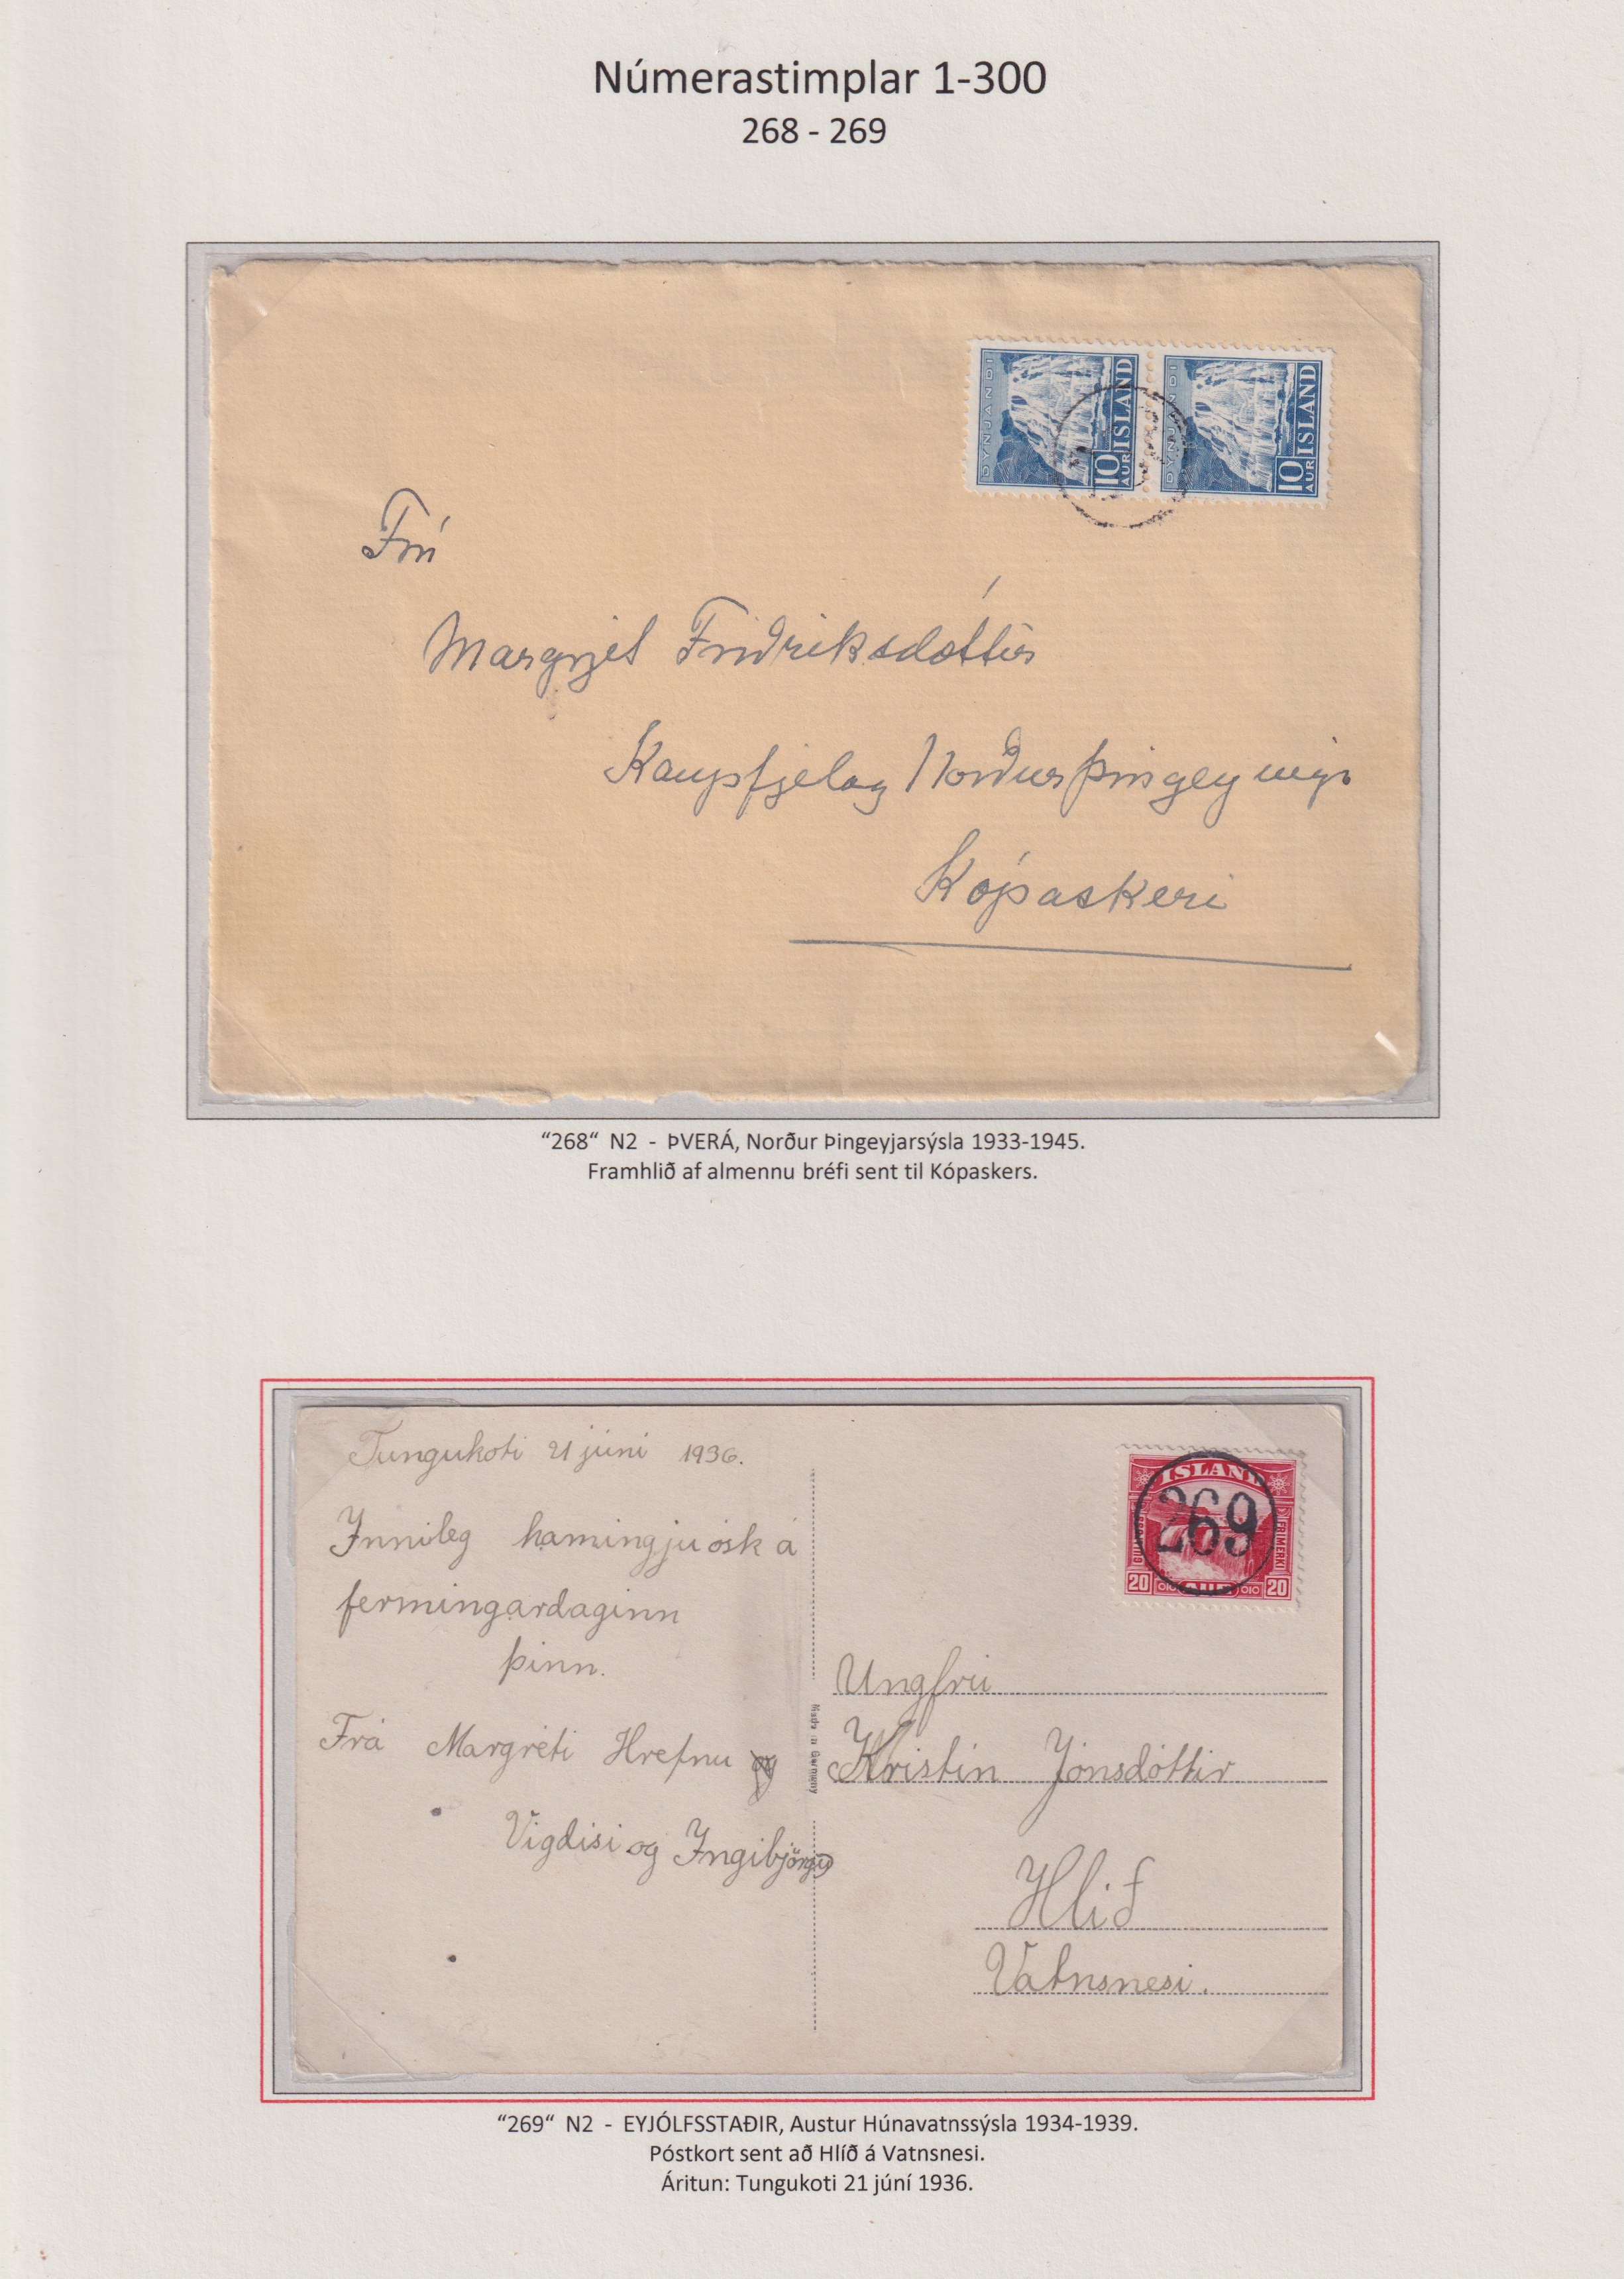 Númerastimplar 1-300
268 - 269
DYNJANDI
10 AUR ÍSLAND
DYNJANDI
10 AUR ÍSLAND
Frú
Margrjet Friðriksdóttir
Kaupfjelag Norðurþingeyinga
Kópaskeri
“268“ N2 - ÞVERÁ, Norður Þingeyjarsýsla 1933-1945.
Framhlið af almennu bréfi sent til Kópaskers.
Tungukoti 21 júní 1936.
Innileg hamingjuósk á
fermingardaginn
þinn.
Frá Margréti Hrefnu og
Vigdísi og Ingibjörgu
ÍSLAND
269
FRÍMERKI
20 AUR 20
Made in Germany
Ungfrú
Kristín Jónsdóttir
Hlíð
Vatnsnesi.
“269“ N2 - EYJÓLFSSTAÐIR, Austur Húnavatnssýsla 1934-1939.
Póstkort sent að Hlíð á Vatnsnesi.
Áritun: Tungukoti 21 júní 1936.